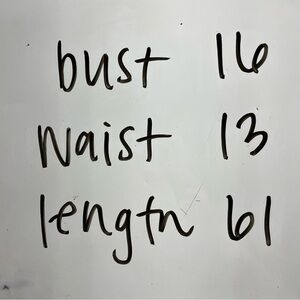 bust 16
waist 13
length 61